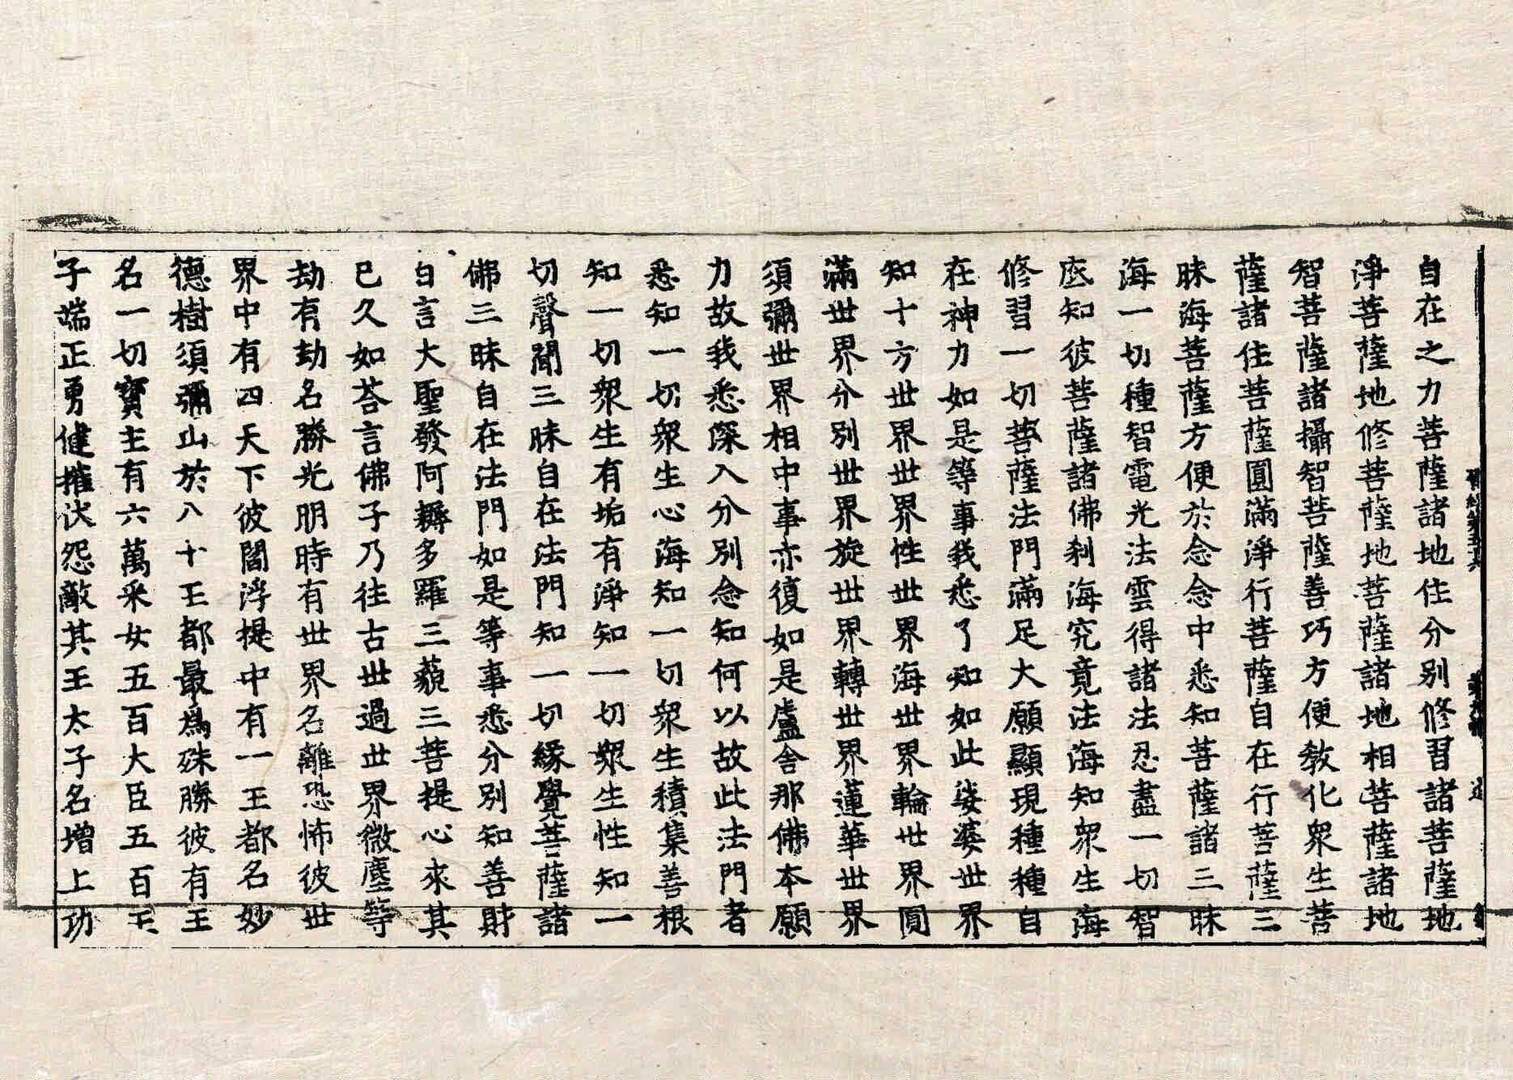 自在之力菩薩諸地住分別修習諸菩薩地
淨菩薩地修菩薩地菩薩諸地相菩薩諸地
智菩薩諸攝智菩薩善巧方便教化衆生菩
薩諸住菩薩圓滿淨行菩薩自在行菩薩三
昧海菩薩方便於念念中悉知菩薩諸三昧
海一切種智電光法雲得諸法忍盡一切智
底知彼菩薩諸佛剎海究竟法海知衆生海
修習一切菩薩法門滿足大願顯現種種自
在神力如是等事我悉了知如此娑婆世界
知十方世界世界性世界海世界輪世界圓
滿世界分別世界旋世界轉世界蓮華世界
須彌世界相中事亦復如是盧舍那佛本願
力故我悉深入分別念知何以故此法門者
悉知一切衆生心海知一切衆生積集善根
知一切衆生有垢有淨知一切衆生性知一
切聲聞三昧自在法門知一切緣覺菩薩諸
佛三昧自在法門如是等事悉分別知善財
白言大聖發阿耨多羅三藐三菩提心來其
已久如荅言佛子乃往古世過世界微塵等
劫有劫名勝光明時有世界名離恐怖彼世
界中有四天下彼閻浮提中有一王都名妙
德樹須彌山於八十王都最爲殊勝彼有王
名一切寶主有六萬采女五百大臣五百王
子端正勇健摧伏怨敵其王太子名增上功